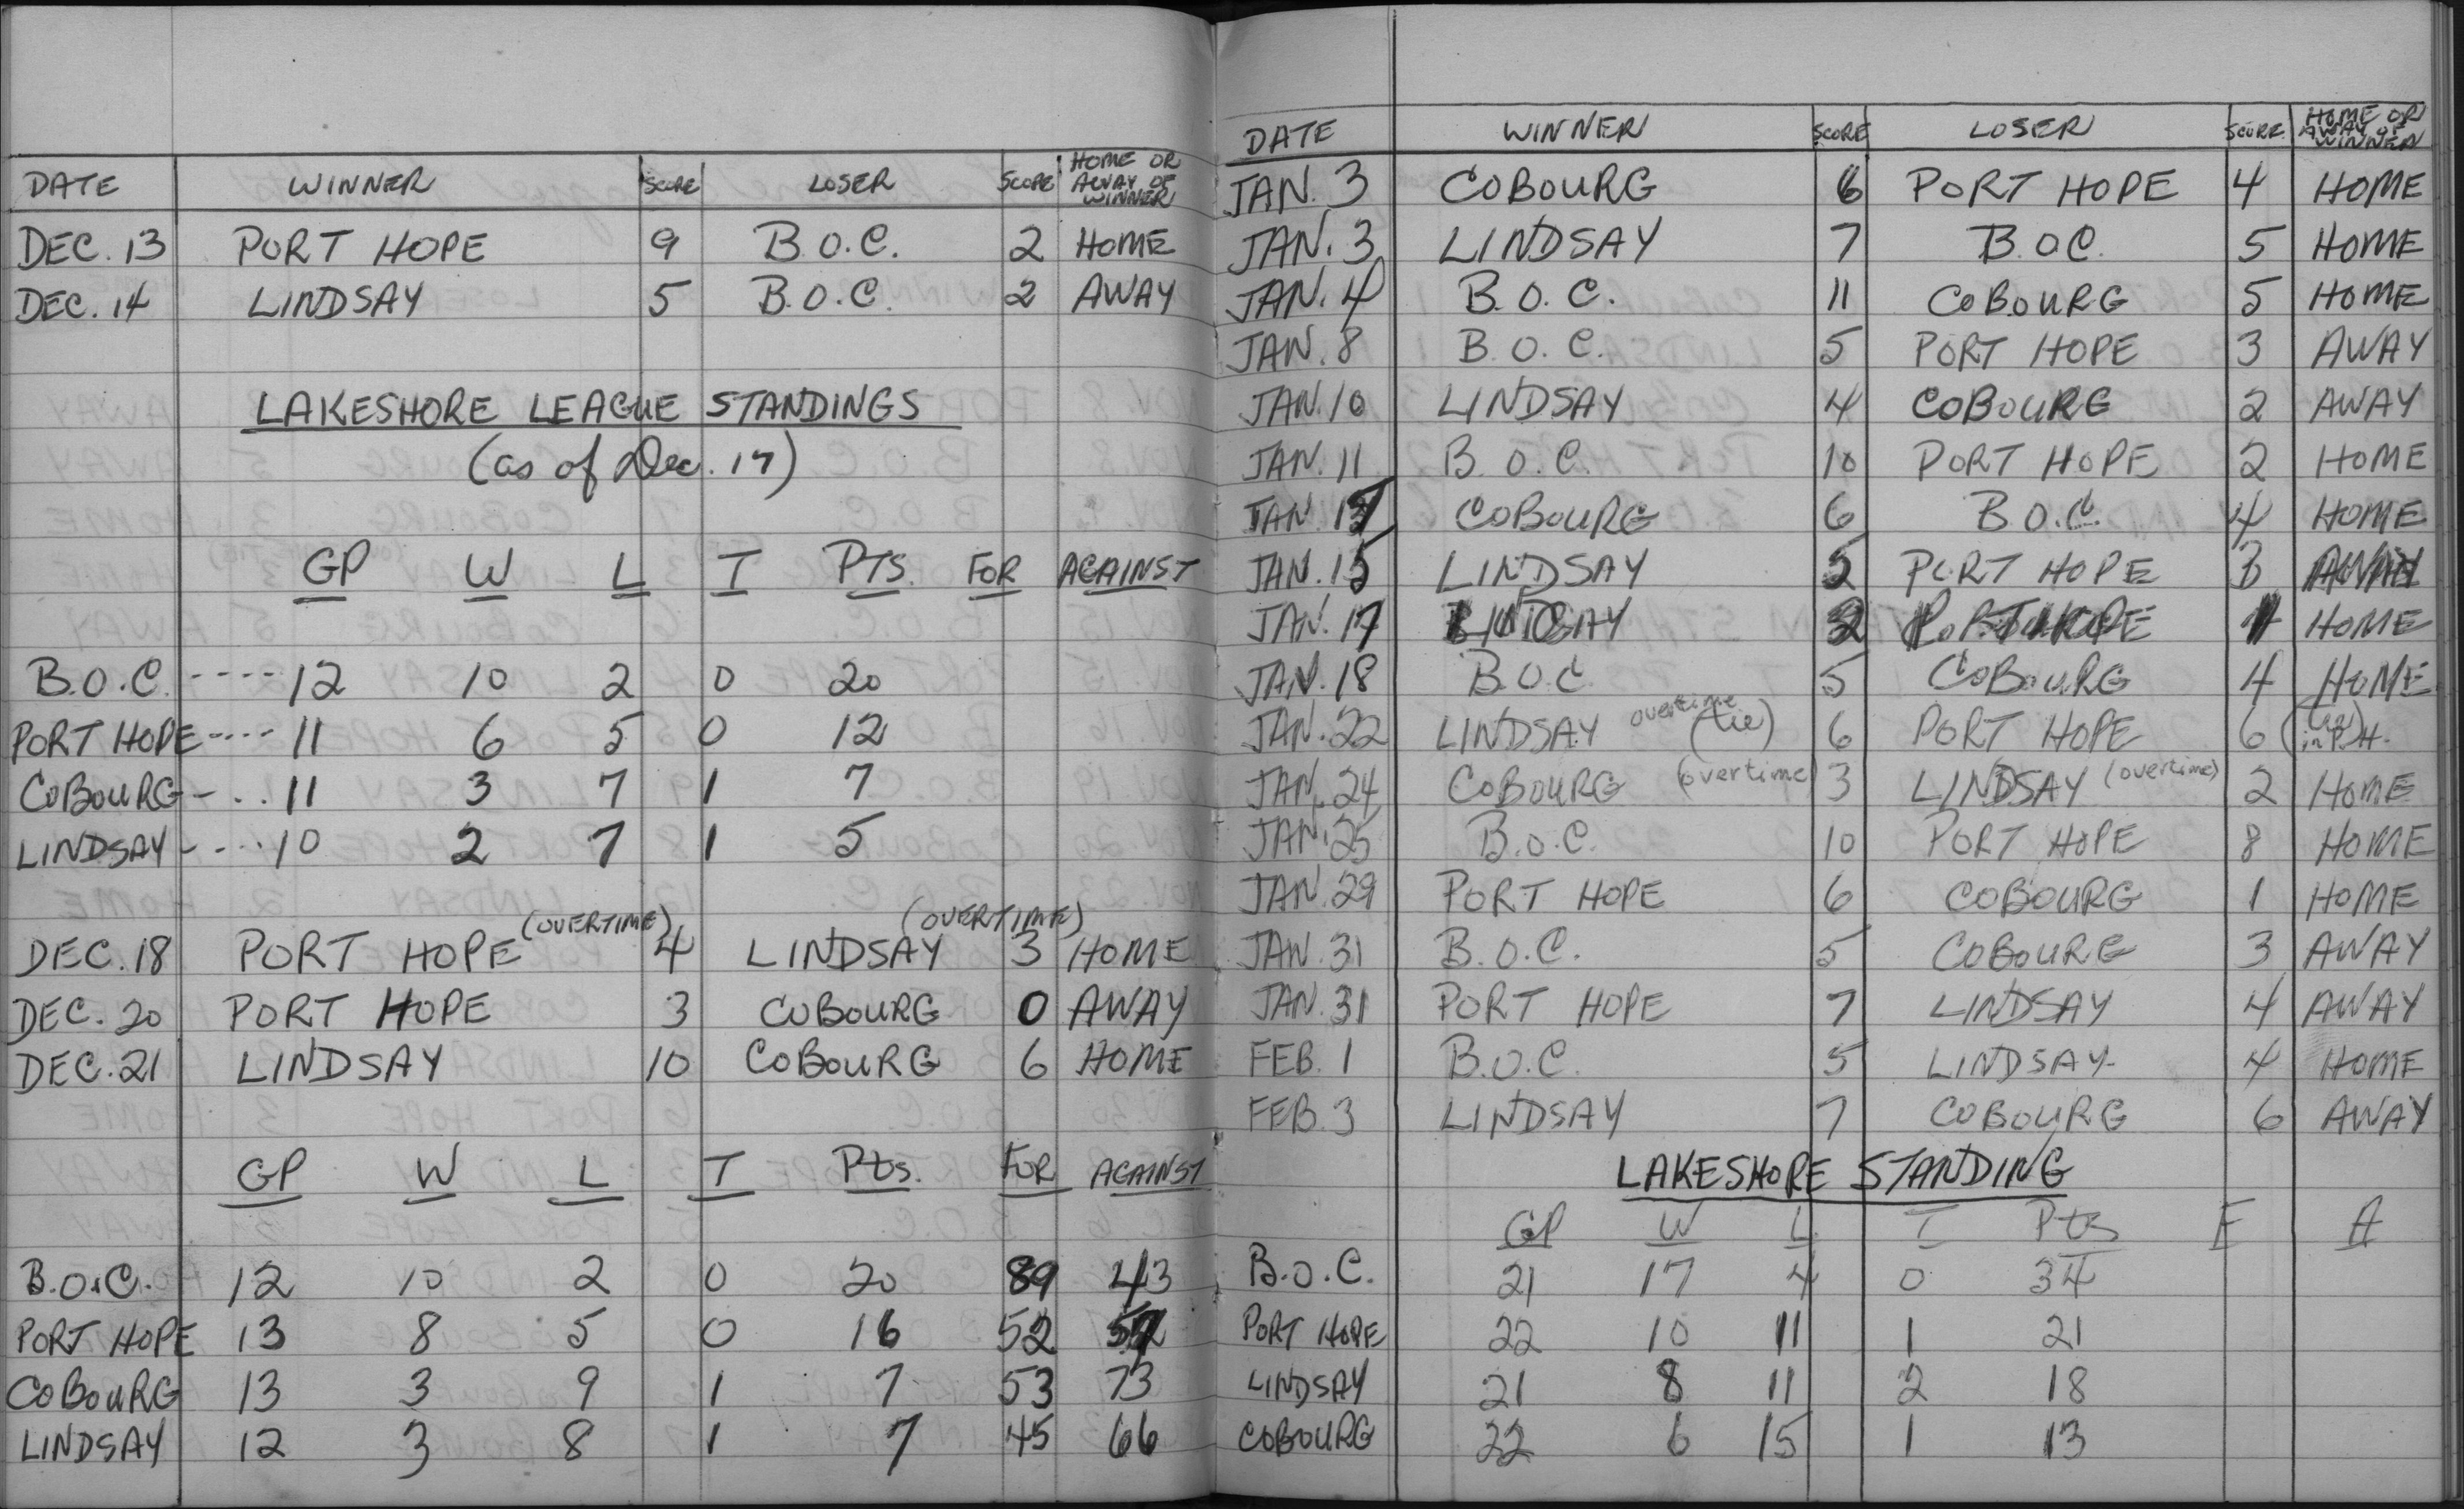 DATE WINNER SCORE LOSER SCORE HOME OR AWAY OF WINNER
DEC. 13 PORT HOPE 9 B.O.C. 2 HOME
DEC. 14 LINDSAY 5 B.O.C. 2 AWAY
LAKESHORE LEAGUE STANDINGS
(as of Dec. 17)
GP W L T PTS. FOR AGAINST
B.O.C. ---- 12 10 2 0 20
PORT HOPE ---- 11 6 5 0 12
COBOURG - .. 11 3 7 1 7
LINDSAY - ... 10 2 7 1 5
DEC. 18 PORT HOPE (OVERTIME) 4 LINDSAY (OVERTIME) 3 HOME
DEC. 20 PORT HOPE 3 COBOURG 0 AWAY
DEC. 21 LINDSAY 10 COBOURG 6 HOME
GP W L T Pts. FOR AGAINST
B.O.C. 12 10 2 0 20 89 43
PORT HOPE 13 8 5 0 16 52
COBOURG 13 3 9 1 7 53 73
LINDSAY 12 3 8 1 7 45 66
DATE WINNER SCORE LOSER SCORE HOME OR AWAY OF WINNER
JAN. 3 COBOURG 6 PORT HOPE 4 HOME
JAN. 3 LINDSAY 7 B.O.C. 5 HOME
JAN. 4 B.O.C. 11 COBOURG 5 HOME
JAN. 8 B.O.C. 5 PORT HOPE 3 AWAY
JAN. 10 LINDSAY 4 COBOURG 2 AWAY
JAN. 11 B.O.C. 10 PORT HOPE 2 HOME
JAN. COBOURG 6 B.O.C. 4 HOME
JAN. 15 LINDSAY 5 PORT HOPE 3 AWAY
JAN. 17 LINDSAY 2 PORT HOPE 1 HOME
JAN. 18 B.O.C 5 COBOURG 4 HOME
JAN. 22 LINDSAY overtime (tie) 6 PORT HOPE 6 (tie) in P.H.
JAN. 24 COBOURG (overtime) 3 LINDSAY (overtime) 2 HOME
JAN. 25 B.O.C. 10 PORT HOPE 8 HOME
JAN. 29 PORT HOPE 6 COBOURG 1 HOME
JAN. 31 B.O.C. 5 COBOURG 3 AWAY
JAN. 31 PORT HOPE 7 LINDSAY 4 AWAY
FEB. 1 B.O.C. 5 LINDSAY 4 HOME
FEB. 3 LINDSAY 7 COBOURG 6 AWAY
LAKESHORE STANDING
GP W L T Pts F A
B.O.C. 21 17 4 0 34
PORT HOPE 22 10 11 1 21
LINDSAY 21 8 11 2 18
COBOURG 22 6 15 1 13